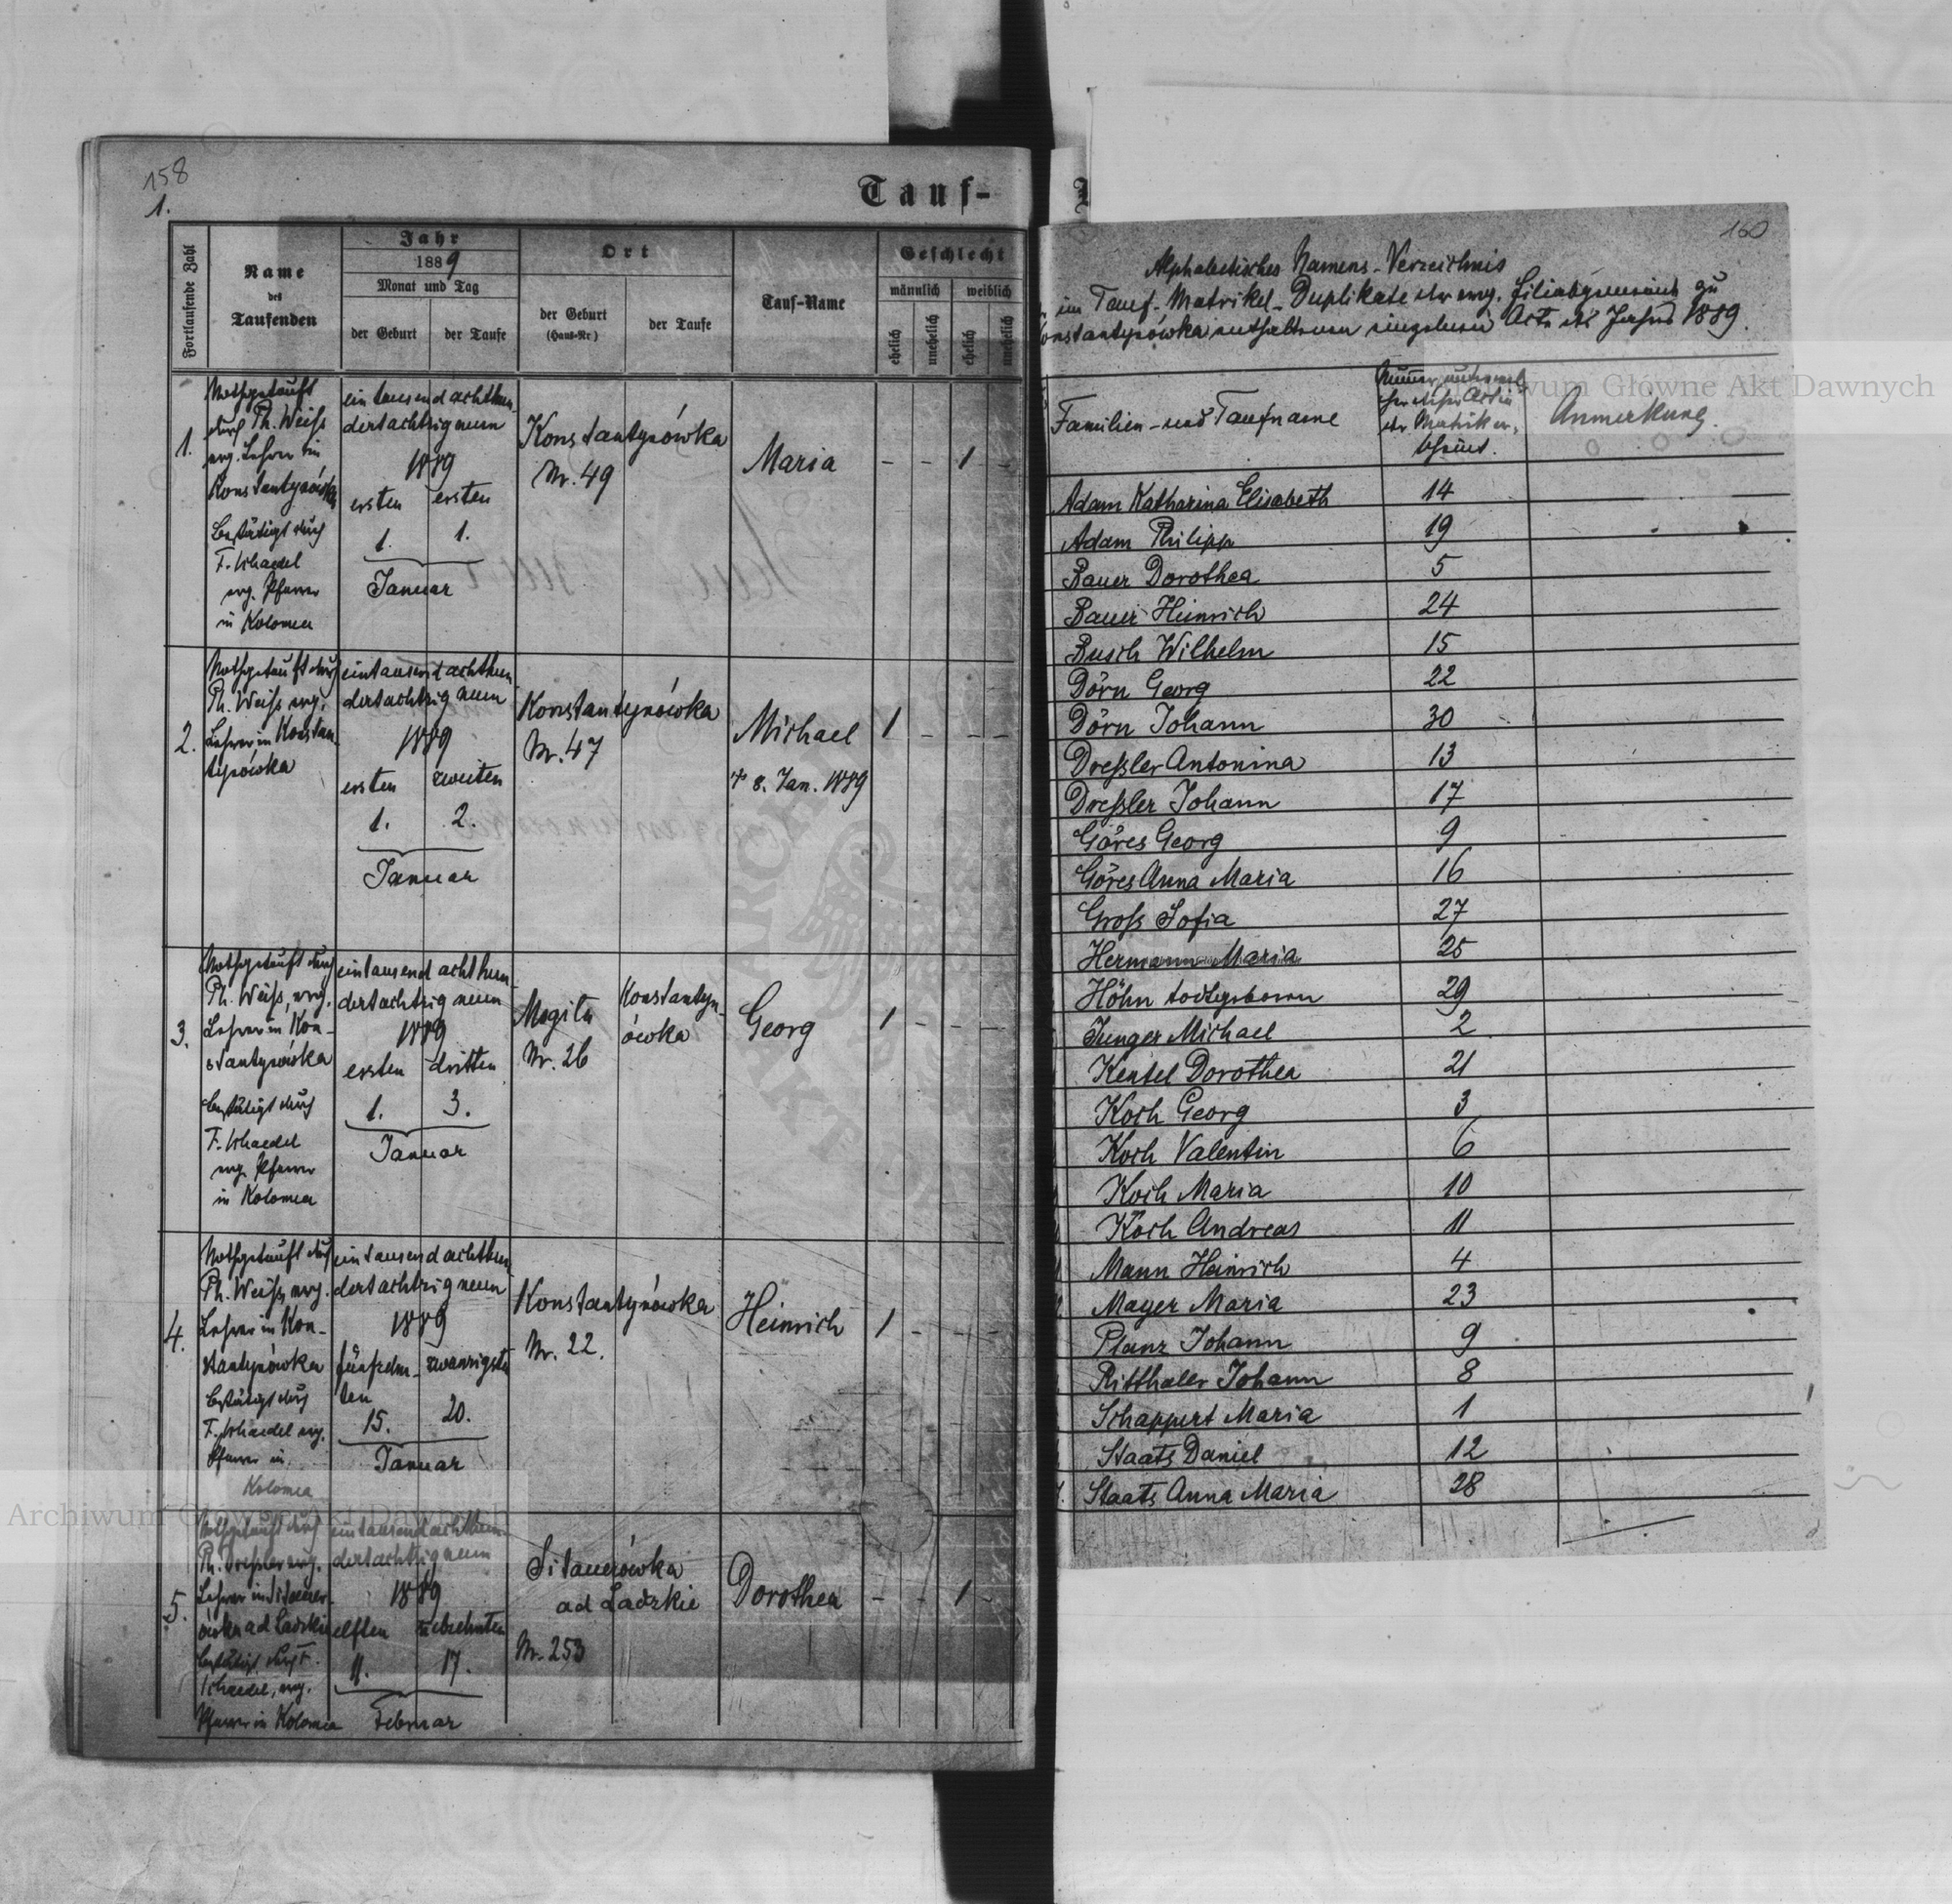 158
1.
Tauf-
Fortlaufende Zahl
Name
des
Taufenden
Jahr
1889
Monat und Tag
der Geburt
der Taufe
Ort
der Geburt
(Haus-Nr)
der Taufe
Tauf-Name
Geschlecht
männlich
weiblich
ehelich
unehelich
ehelich
unehelich
1.
Nothgetauft
durch Ph. Weiss
evg. Lehrer in
Konstantynówka
Bestätigt durch
F. Schaedel
evg. Pfarrer
in Kolomea
ein tausend achthun-
dertachtzig neun
1889
ersten ersten
1. 1.
Januar
Konstantynówka
Nr. 49
Maria
- - 1 -
2.
Nothgetauft durch
Ph. Weiss evg.
Lehrer in Konstan-
tynówka
eintausend achthun-
dertachtzig neun
1889
ersten zweiten
1. 2.
Januar
Konstantynówka
Nr. 47
Michael
† 8. Jan. 1889
1 - - -
3.
Nothgetauft durch
Ph. Weiss, evg.
Lehrer in Kon-
stantynówka
bestätigt durch
F. Schaedel
evg. Pfarrer
in Kolomea
eintausend achthun-
dertachtzig neun
1889
ersten dritten
1. 3.
Januar
Mogila
Nr. 26
Konstantyn-
ówka
Georg
1 - - -
4.
Nothgetauft durch
Ph. Weiss, evg.
Lehrer in Kon-
stantynówka
bestätigt durch
F. Schaedel evg.
Pfarrer in
Kolomea
eintausend achthun-
dertachtzig neun
1889
fünfzehn- zwanzigsten
ten
15. 20.
Januar
Konstantynówka
Nr. 22.
Heinrich
1 - - -
5.
Nothgetauft durch
Ph. Dressler evg.
Lehrer in Sitauer-
ówka ad Ladzkie
bestätigt durch F.
Schaedel, evg.
Pfarrer in Kolomea
eintausend achthun-
dertachtzig neun
1889
elften siebzehnten
11. 17.
Februar
Sitauerówka
ad Ladzkie
Nr. 253
Dorothea
- - 1 -
160
Alphabetisches Namens-Verzeichnis
im Tauf-Matrikel-Duplikate der evg. Filialgemeinde zu
Konstantynówka enthaltenen einzelnen Acte des Jahres 1889.
Familien- und Taufname
Anmerkung.
Adam Katharina Elisabeth 14
Adam Philipp 19
Bauer Dorothea 5
Bauer Heinrich 24
Busch Wilhelm 15
Dörn Georg 22
Dörn Johann 30
Dreßler Antonina 13
Dreßler Johann 17
Göres Georg 9
Göres Anna Maria 16
Groß Sofia 27
Hermann Maria 25
Höhn todtgeboren 29
Junger Michael 2
Kentel Dorothea 21
Koch Georg 3
Koch Valentin 6
Koch Maria 10
Koch Andreas 11
Mann Heinrich 4
Mayer Maria 23
Planz Johann 9
Ritthaler Johann 8
Schappert Maria 1
Staats Daniel 12
Staats Anna Maria 28
Archiwum Główne Akt Dawnych
Archiwum Główne Akt Dawnych